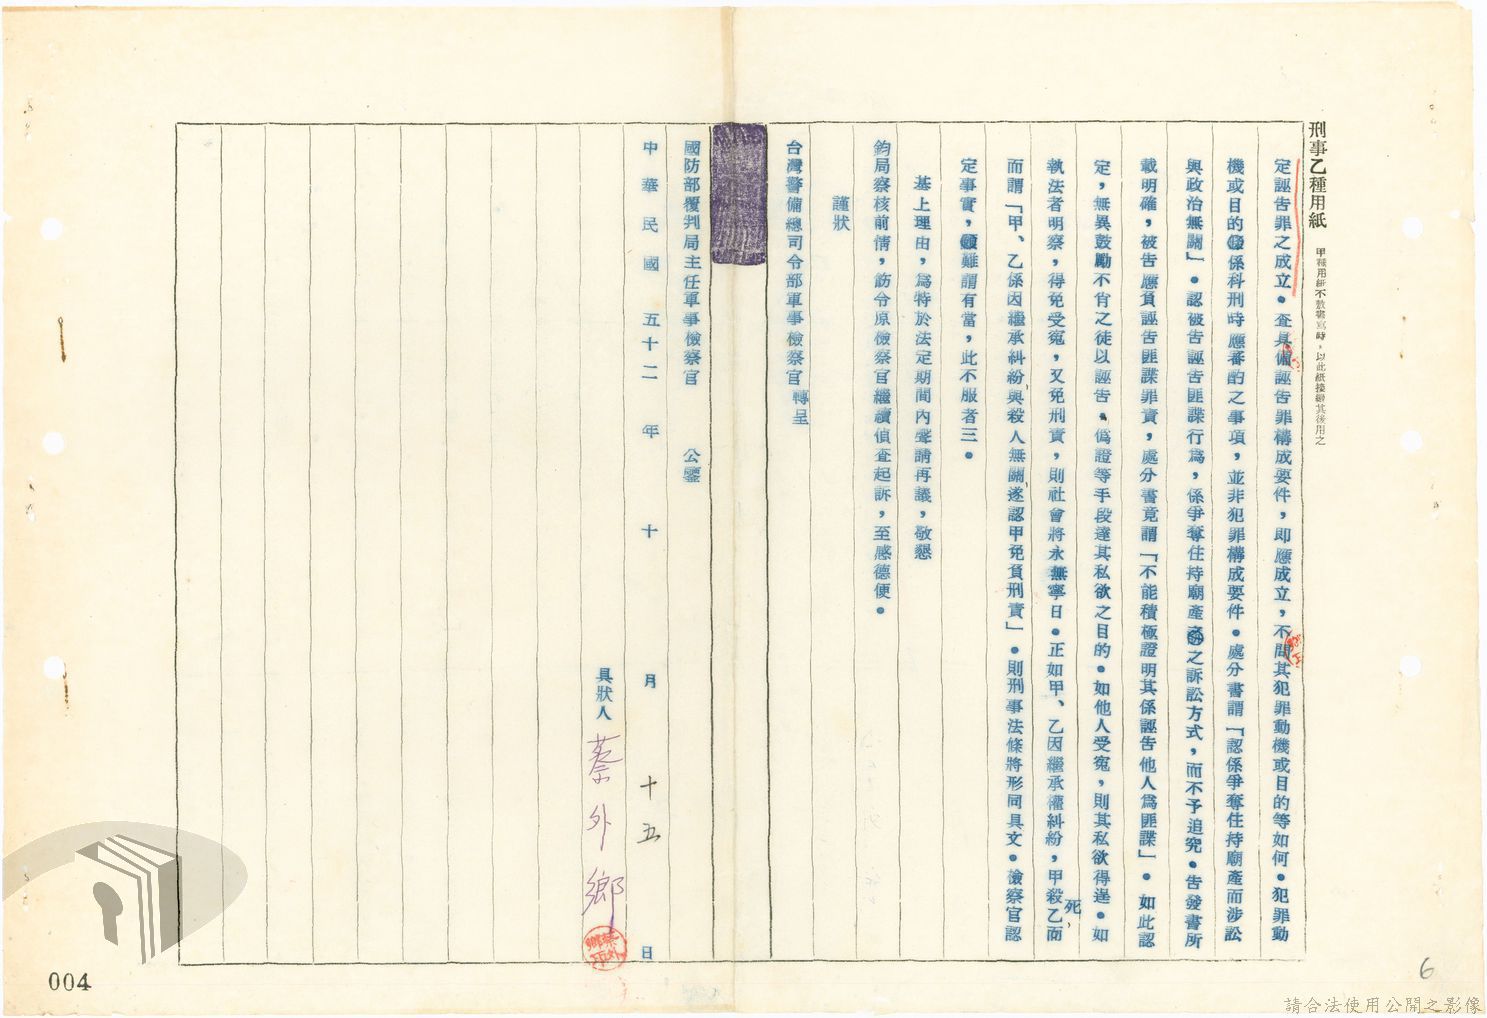 刑事乙種用紙 甲種用紙不敷書寫時，以此紙接續其後用之
定誣告罪之成立。查具備誣告罪構成要件，即應成立，不問其犯罪動機或目的等如何。犯罪動
機或目的係科刑時應審酌之事項，並非犯罪構成要件。處分書謂「認係爭奪住持廟產而涉訟
與政治無關」。認被告誣告匪諜行為，係爭奪住持廟產之訴訟方式，而不予追究。告發書所
載明確，被告應負誣告匪諜罪責，處分書竟謂「不能積極證明其係誣告他人為匪諜」。如此認
定，無異鼓勵不肖之徒以誣告、偽證等手段達其私欲之目的。如他人受冤，則其私欲得逞。如
執法者明察，得免受冤，又免刑責，則社會將永無寧日。正如甲、乙因繼承權糾紛，甲殺乙死，而
而謂「甲、乙係因繼承糾紛，與殺人無關，遂認甲免負刑責」。則刑事法條將形同具文。檢察官認
定事實，顯難謂有當，此不服者三。
基上理由，為特於法定期間內聲請再議，敬懇
鈞局察核前情，飭令原檢察官繼續偵查起訴，至感德便。
謹狀
台灣警備總司令部軍事檢察官 轉呈
國防部覆判局主任軍事檢察官 公鑒
中華民國五十二年十月十五日
具狀人 蔡外鄉
004
6
請合法使用公開之影像